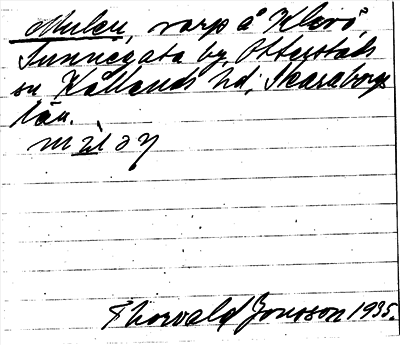 Mulen, varp å Klevö,
Sunnegata by, Otterstads
sn Kållands hd, Skaraborgs
län.
Thorvald Jonsson 1935.